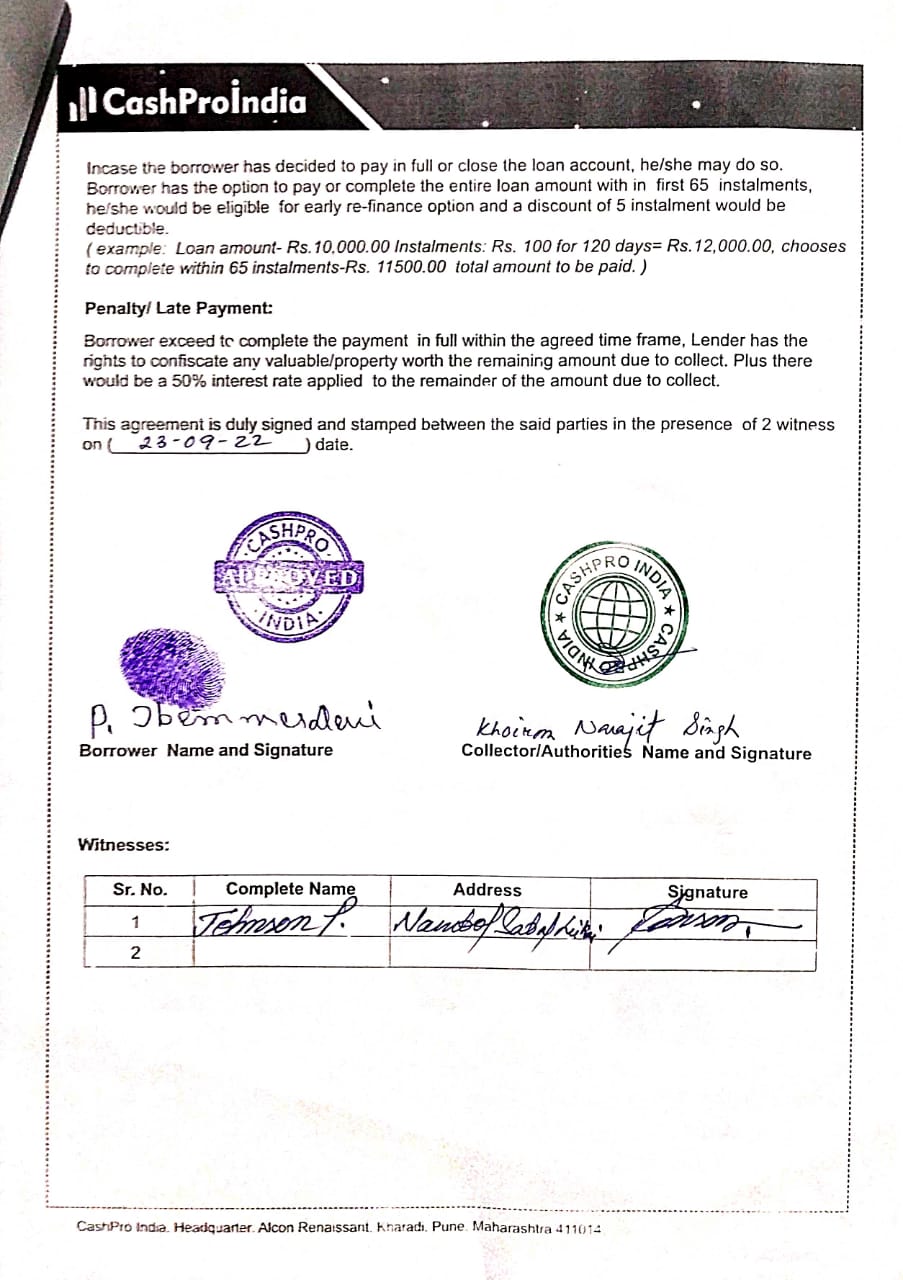 CashProİndia
Incase the borrower has decided to pay in full or close the loan account, he/she may do so.
Borrower has the option to pay or complete the entire loan amount with in first 65 instalments,
he/she would be eligible for early re-finance option and a discount of 5 instalment would be
deductible.
( example: Loan amount- Rs.10,000.00 Instalments: Rs. 100 for 120 days= Rs.12,000.00, chooses
to complete within 65 instalments-Rs. 11500.00 total amount to be paid. )
Penalty/ Late Payment:
Borrower exceed to complete the payment in full within the agreed time frame, Lender has the
rights to confiscate any valuable/property worth the remaining amount due to collect. Plus there
would be a 50% interest rate applied to the remainder of the amount due to collect.
This agreement is duly signed and stamped between the said parties in the presence of 2 witness
on ( 23-09-22 ) date.
CASHPRO
APPROVED
INDIA
CASHPRO INDIA ★ CASHPRO INDIA ★
P.
Khoirom Narajit Singh
Borrower Name and Signature
Collector/Authorities Name and Signature
Witnesses:
Sr. No. Complete Name Address Signature
1 Johnson P.
2
CashPro India. Headquarter. Alcon Renaissant. Kharadi. Pune. Maharashtra 411014